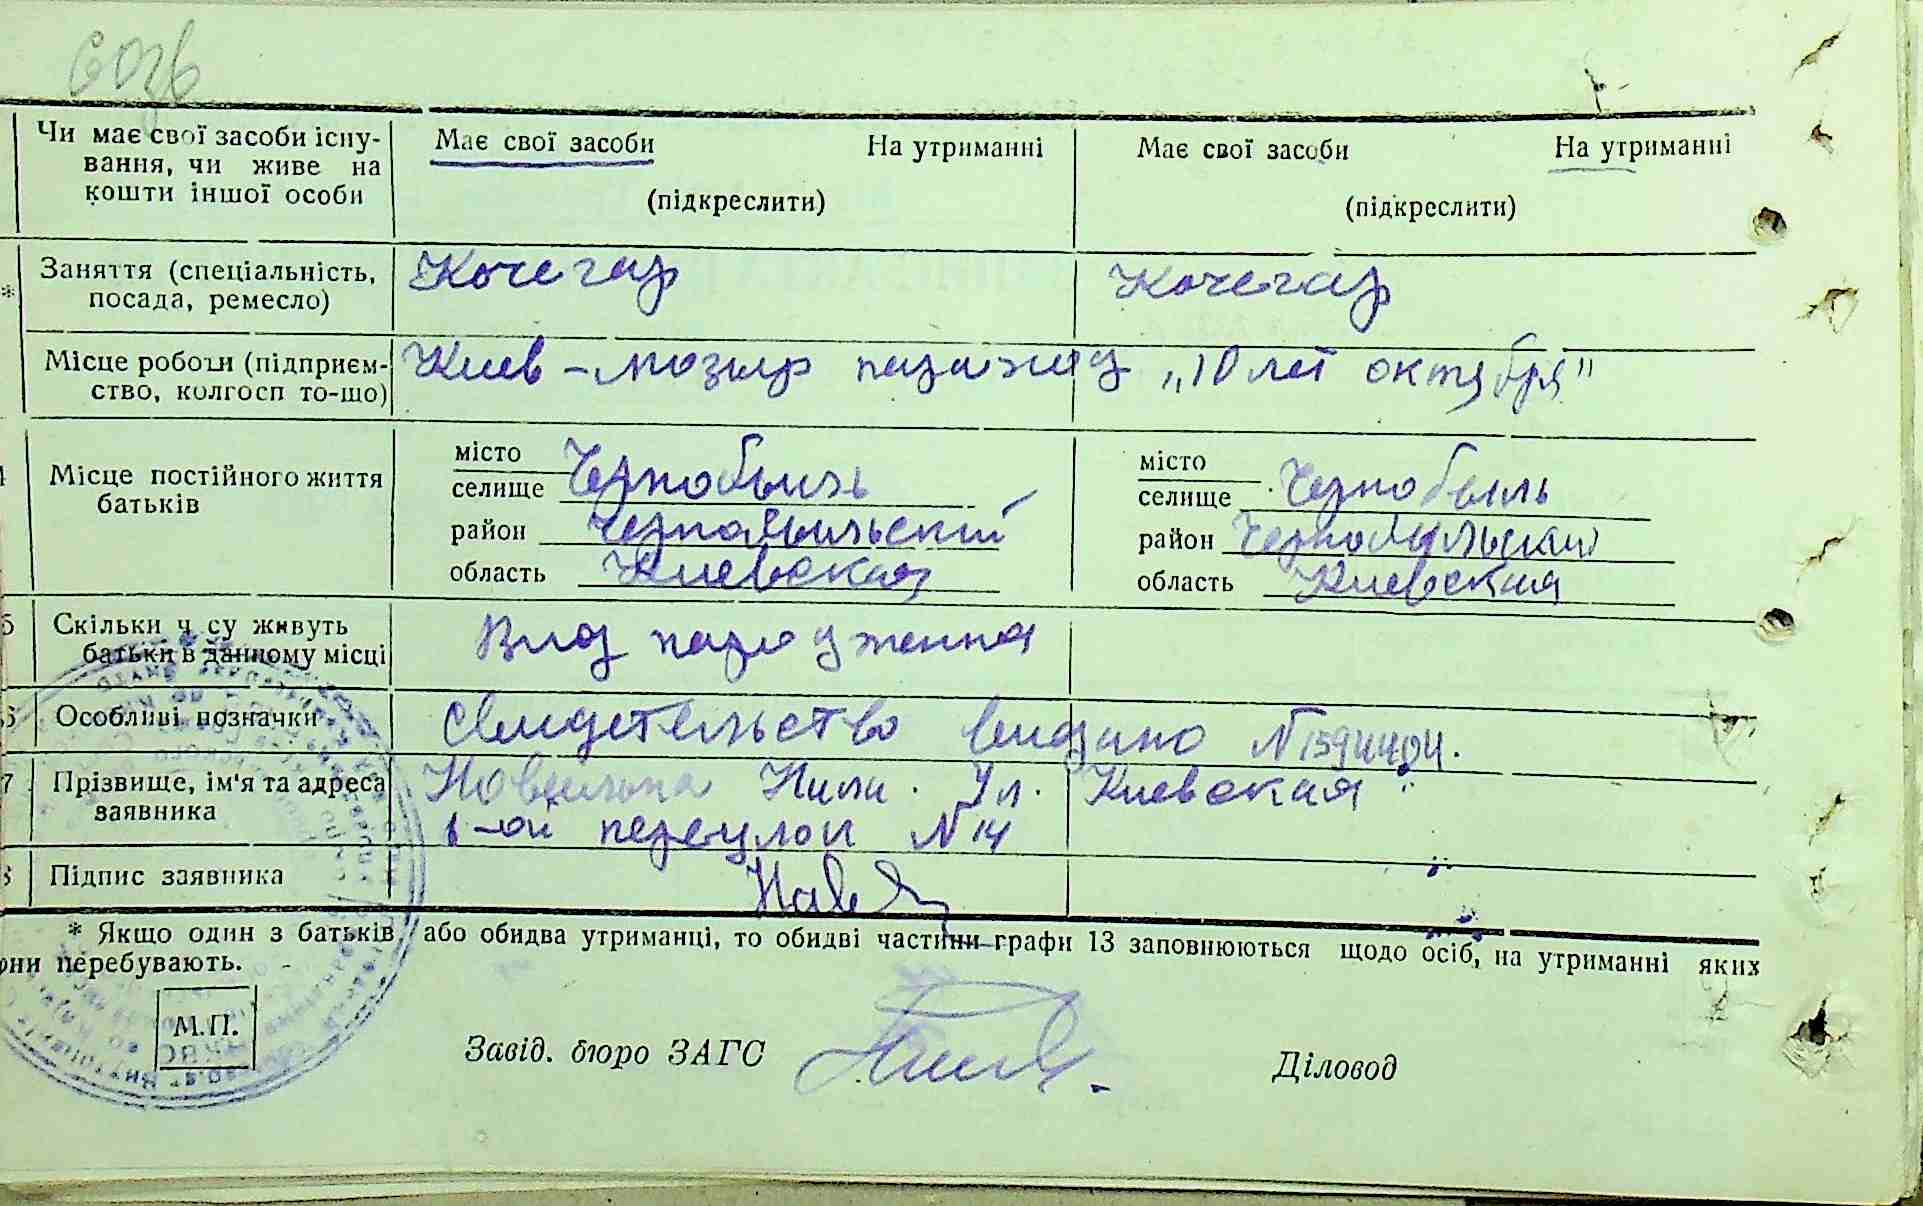 Чи має свої засоби існу-
вання, чи живе на
кошти іншої особи
Має свої засоби На утриманні
(підкреслити)
Має свої засоби На утриманні
(підкреслити)
* Заняття (спеціальність,
посада, ремесло)
Кочегар
Кочегар
Місце роботи (підприєм-
ство, колгосп то-що)
Киев – Мозырь пароход „10 лет октября"
Місце постійного життя
батьків
місто
селище Чернобыль
район Чернобыльский
область Киевская
місто
селище Чернобыль
район Чернобыльский
область Киевская
5 Скільки ч су живуть
батьки в данному місці
Вид народження
6 Особливі позначки
Свидетельство выдано №
7 Прізвище, ім'я та адреса
заявника
Ул. Киевская
1-ой переулок №14
8 Підпис заявника
* Якщо один з батьків або обидва утриманці, то обидві частини графи 13 заповнюються щодо осіб, на утриманні яких
они перебувають.
М.П.
Завід. бюро ЗАГС
Діловод